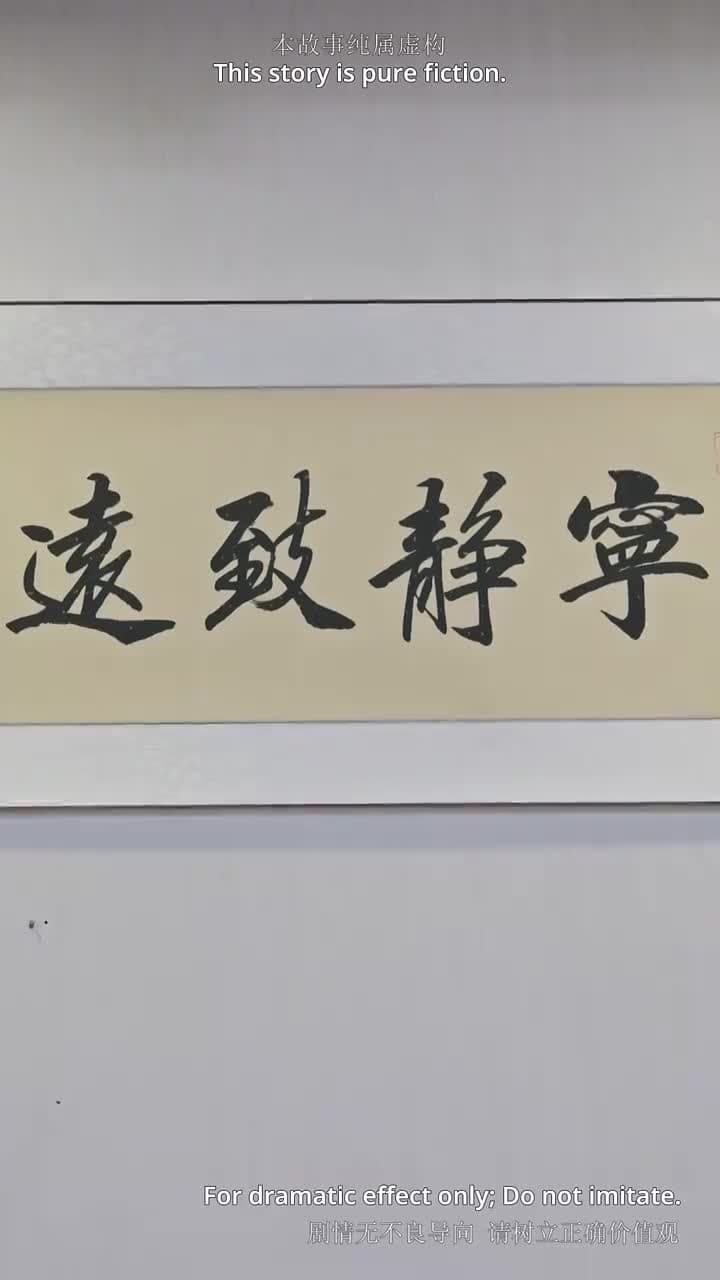 本故事纯属虚构
This story is pure fiction.
寧静致遠
For dramatic effect only; Do not imitate.
剧情无不良导向 请树立正确价值观